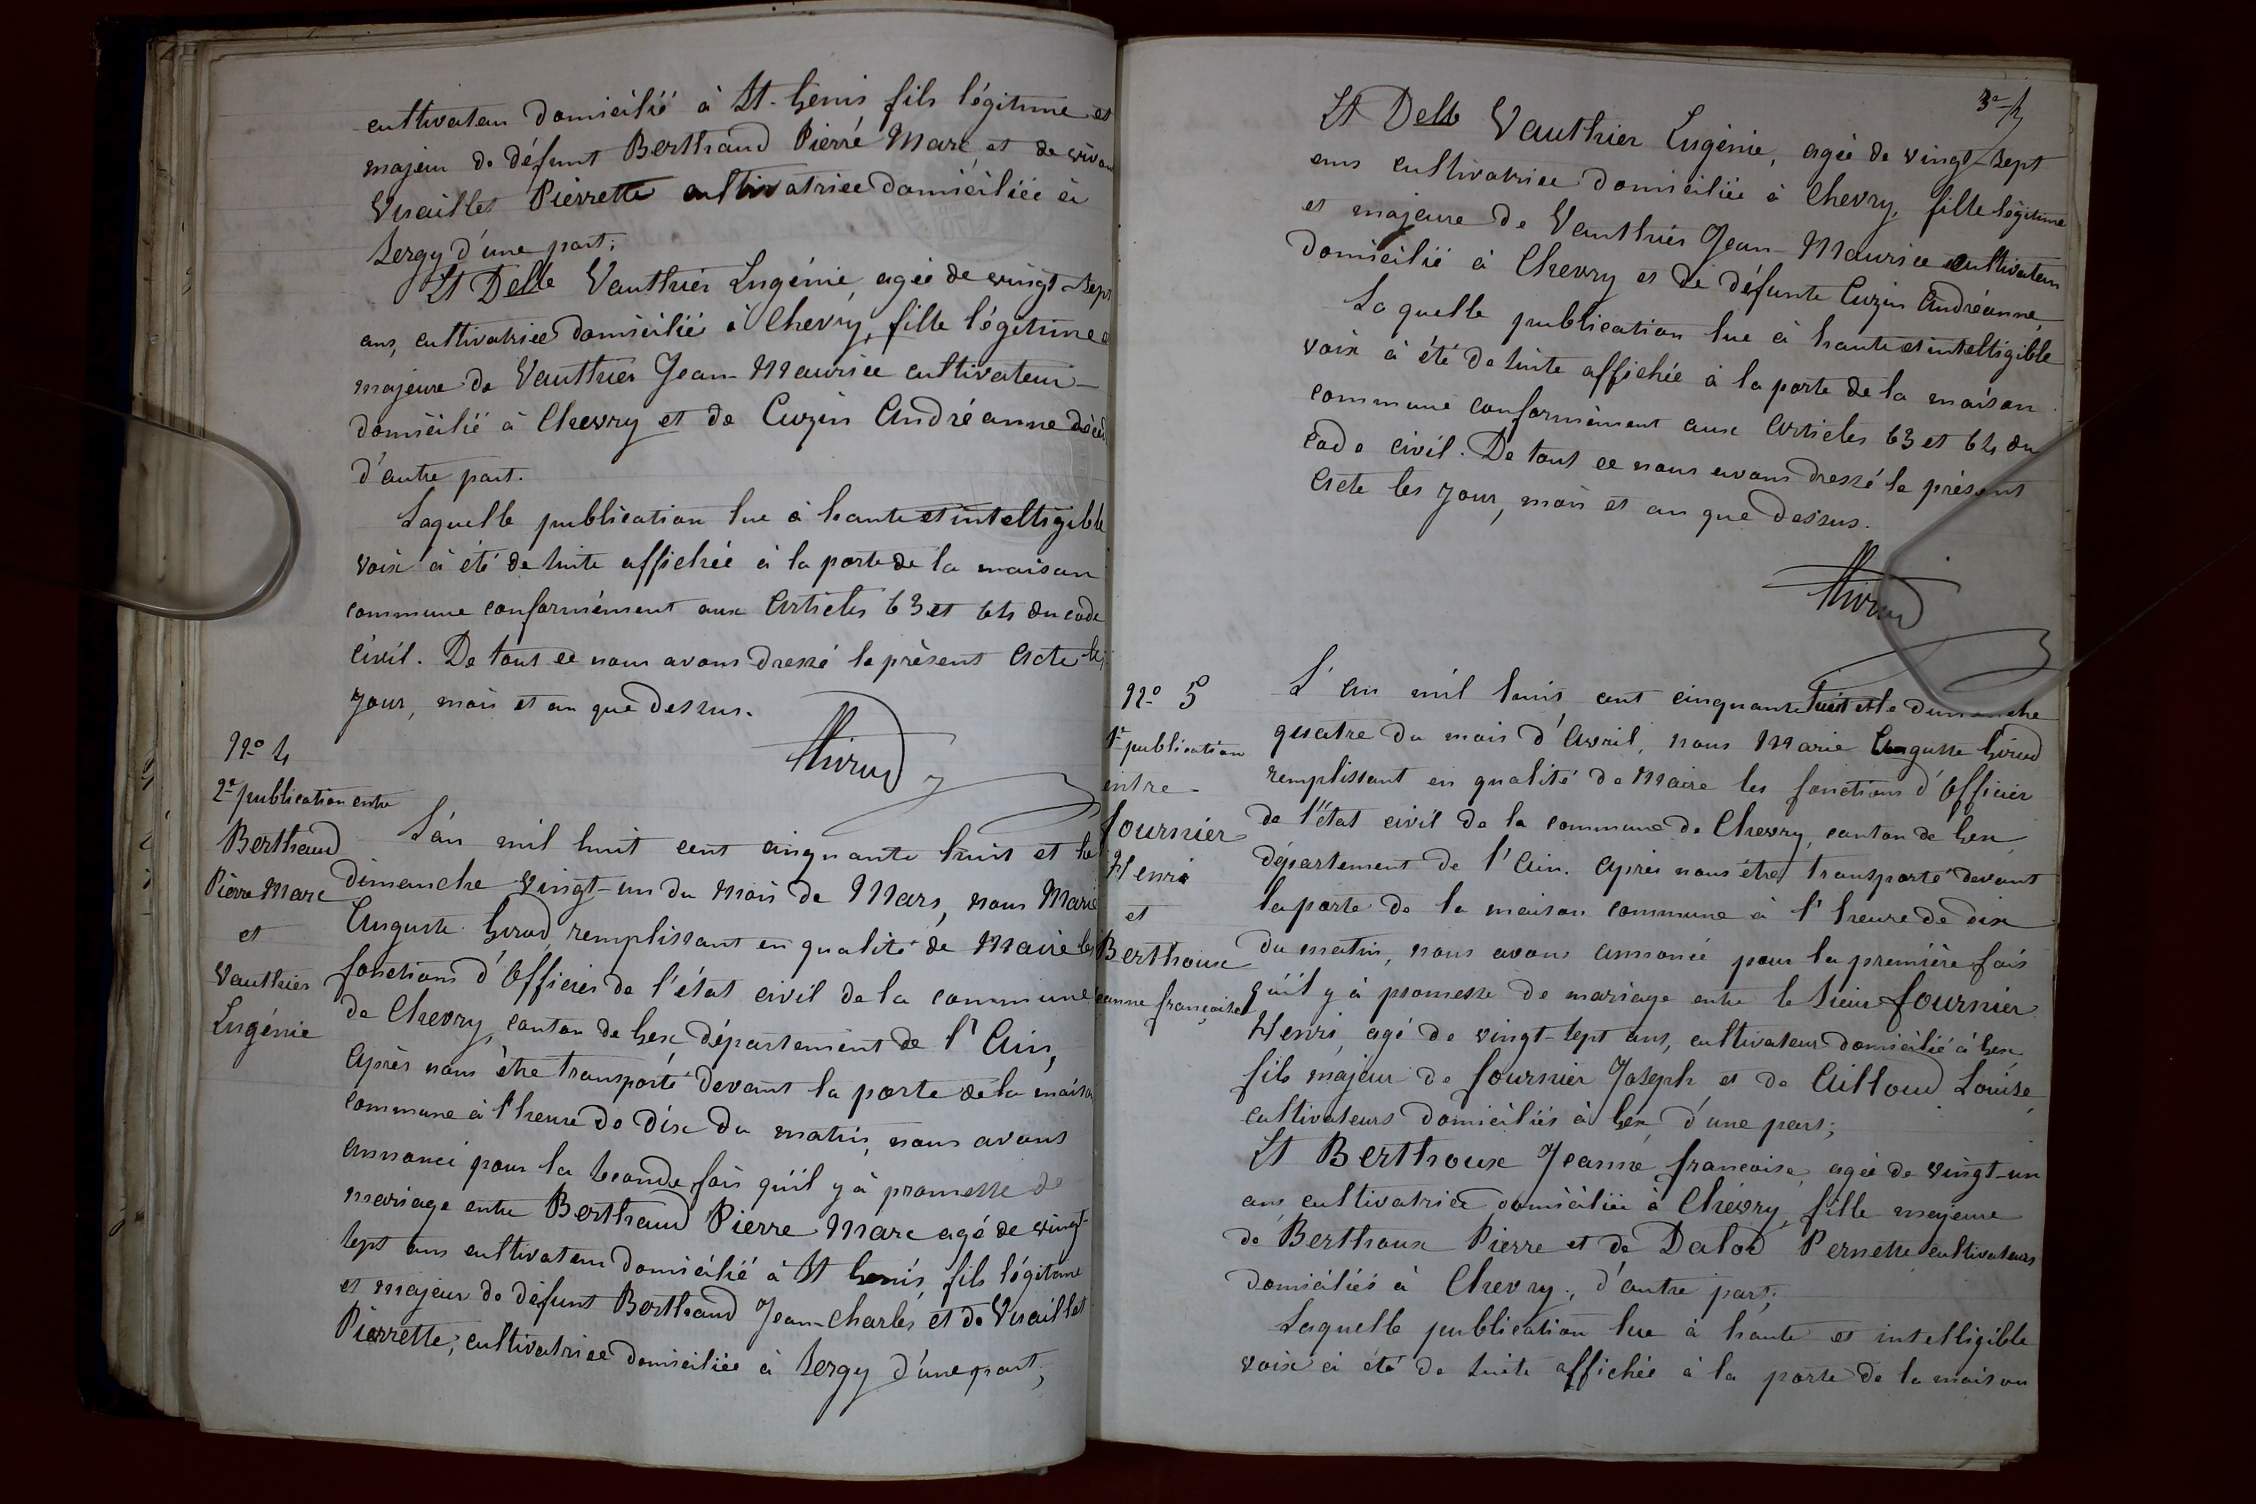 cultivateur domicilié à St. Genis fils légitime et
majeur de défunt Berthaud Pierre Marc, et de
Vuaillet Pierrette cultivatrice domiciliée à
Sergy d'une part;
Et Delle Vauthier Eugénie, agée de vingt-sept
ans, cultivatrice domiciliée à Chevry, fille légitime et
majeure de Vauthier Jean-Maurice cultivateur
domicilié à Chevry et de Cuzin Andréanne
d'autre part.
Laquelle publication lue à haute et intelligible
voix à été de suite affichée à la porte de la maison
commune conformément aux Articles 63 et 64 du code
civil. De tout ce nous avons dressé le présent Acte les
jour, mois et an que dessus.
Girod
No 4
2e publication entre
Berthaud
Pierre Marc
et
Vauthier
Eugénie
L'an mil huit cent cinquante huit et le
dimanche vingt-un du mois de Mars, nous Marie
Auguste Girod, remplissant en qualité de Maire les
fonctions d'Officier de l'état civil de la commune
de Chevry, canton de Gex, département de l'Ain,
Après nous être transporté devant la porte de la maison
commune à l'heure de dix du matin, nous avons
annoncé pour la seconde fois qu'il y à promesse de
mariage entre Berthaud Pierre Marc agé de vingt-
sept ans cultivateur domicilié à St Genis, fils légitime
et majeur de défunt Berthaud Jean-Charles et de Vuaillet
Pierrette, cultivatrice domiciliée à Sergy d'une part;
Et Delle Vauthier Eugénie, agée de vingt-sept
ans cultivatrice domiciliée à Chevry, fille légitime
et majeure de Vauthier Jean-Maurice cultivateur
domicilié à Chevry et de défunte Cuzin Andréanne,
Laquelle publication lue à haute et intelligible
voix à été de suite affichée à la porte de la maison
commune conformément aux Articles 63 et 64 du
code civil. De tout ce nous avons dressé le présent
Acte les jour, mois et an que dessus.
Girod
No 5
1e publication
entre
fournier
Henri
et
Berthoux
Jeanne françoise
L'an mil huit cent cinquante huit et le dimanche
quatre du mois d'Avril, nous Marie Auguste Girod
remplissant en qualité de Maire les fonctions d'Officier
de l'état civil de la commune de Chevry, canton de Gex,
département de l'Ain. Après nous être transporté devant
la porte de la maison commune à l'heure de dix
du matin, nous avons annoncé pour la première fois
qu'il y à promesse de mariage entre le Sieur fournier
Henri, agé de vingt-sept ans, cultivateur domicilié à Gex
fils majeur de fournier Joseph et de Ailloud Louise,
cultivateurs domiciliés à Gex, d'une part;
Et Berthoux Jeanne francoise, agée de vingt-un
ans cultivatrice domiciliée à Chevry, fille majeure
de Berthoux Pierre et de Dalod Pernette cultivateurs
domiciliés à Chevry, d'autre part;
Laquelle publication lue à haute et intelligible
voix à été de suite affichée à la porte de la maison